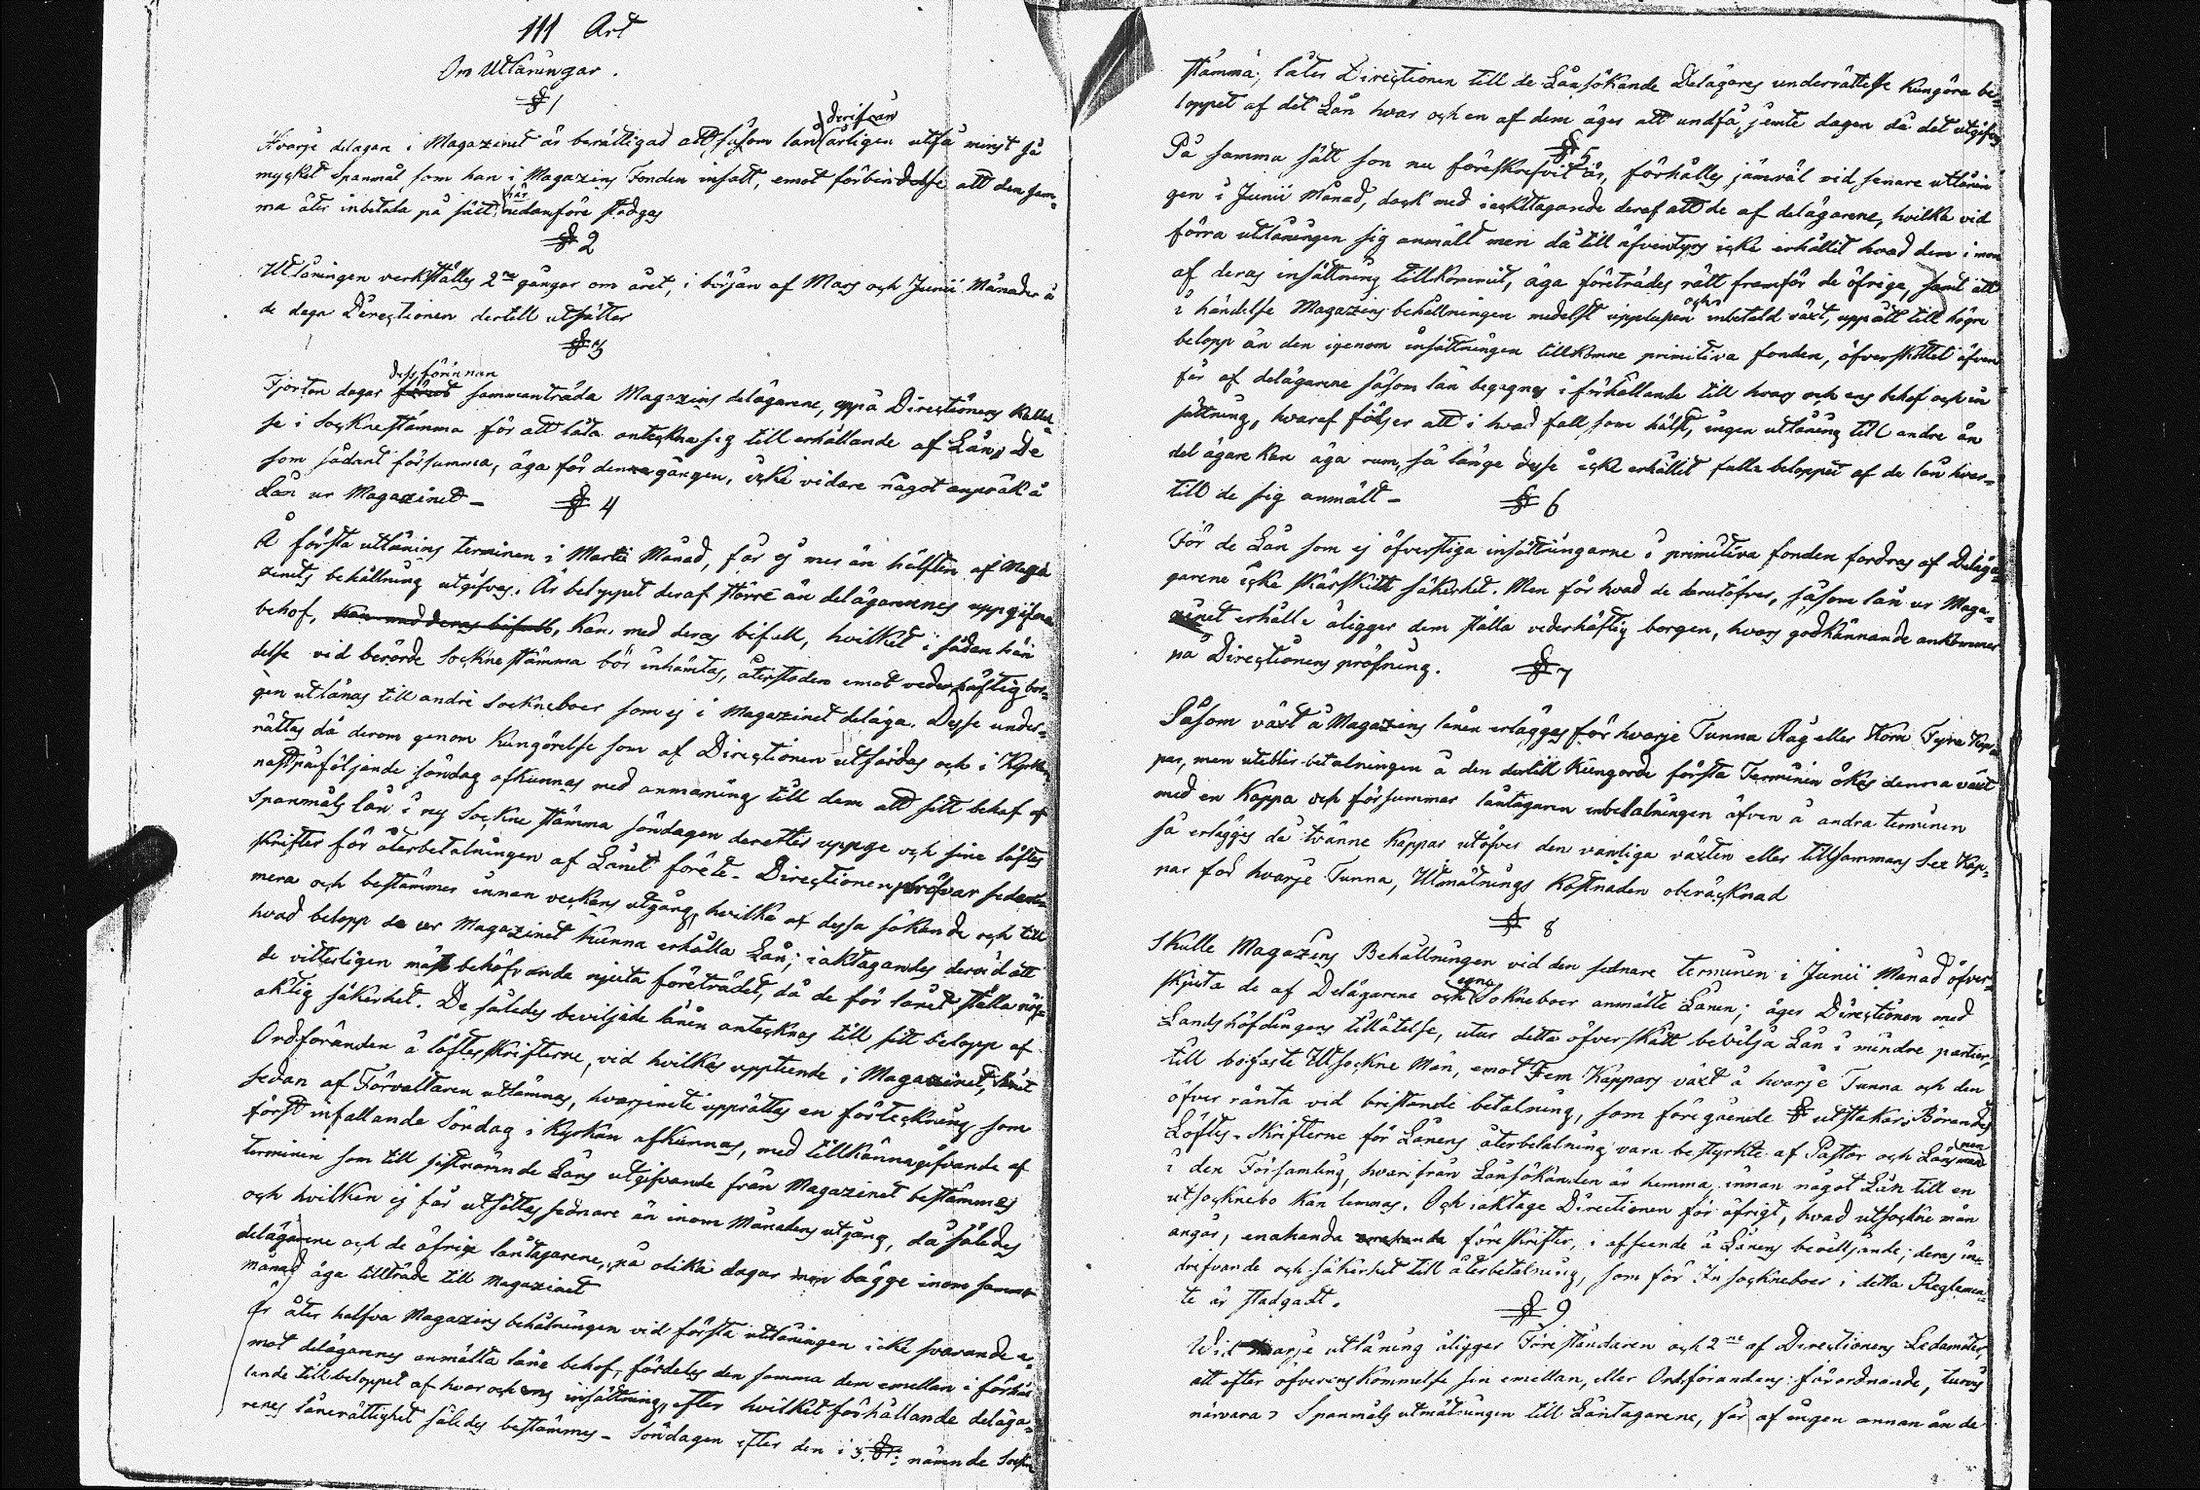 111 Art
Om Utlåningar.
§ 1
derifrån
Hvarje delägare i Magazinet är berättigad att såsom lån årligen utfå minst så
mycket Spanmål som han i Magazins Fonden insatt, emot förbindelse att den sam-
här
ma åter inbetala på sätt nedanföre stadgas
§ 2
Utlåningen verkställes 2ne gångor om året, i början af Mars och Junii Månader å
de dagar Directionen dertill utsätter
§ 3
dessförinnan
Fjorton dagar förut sammanträda Magazins delägarene, uppå Directionens kallel-
se i Sockne stämma för att låta anteckna sig till erhållande af Lån, De
som sådant försumma, äga för denna gången, icke vidare något anspråk å
Lån ur Magazinet -
§ 4
Å första utlånings terminen i Martii Månad, får ej mer än hälften af Maga-
zinets behållning utgifvas. Är beloppet deraf större än delägarenes uppgifna
behof, kan med deras bifall, kan med deras bifall, hvilket i sådan hän
delse vid berörde Sockne stämma bör inhämtas, återstoden emot vederhäftig bor-
gen utlånas till andre Sockneboer som ej i Magazinet deläga. Desse under-
rättas då derom genom kungörelse som af Directionen utfärdas och i Kyrkan
nästpåföljande söndag afkunnas med anmaning till dem att sitt behof af
Spanmåls lån i ny Sockne stämma söndagen derefter uppge och sine löftes
skrifter för återbetalningen af Lånet förete. Directionen pröfvar sedan
mera och bestämmer innan veckans utgång, hvilka af dessa sökande och till
hvad belopp de ur Magazinet kunna erhålla Lån; iakttagandes dervid att
de vitterligen mäst behöfvande njuta företrädet, då de för lånet ställa nöj-
aktig säkerhet. De således beviljade lånen antecknas till sitt belopp af
Ordföranden å löftesskrifterne, vid hvilkas uppteende i Magazinet, lånet
sedan af Förvaltaren utlämnas, hvarjemte upprättas en förteckning som
först infallande Söndag i Kyrkan afkunnas, med tillkännagifvande af
terminen som till sistnämnde Låns utgifvande från Magazinet bestämmes
och hvilken ej får utsättas sednare än inom Månadens utgång, då således
delägarene och de öfrige låntagarene, på olika dagar men bägge inom samma
månad äga tillträde till Magazinet
Är åter halfva Magazins behållningen vid första utlåningen icke svarande e-
mot delägarenes anmälta låne behof, fördeles den samma dem emellan i förhål-
lande till beloppet af hvar och ens insättning, efter hvilket förhållande deläga-
renes lånerättighet således bestämmes - Söndagen efter den i 3. §: nämnde Sockne
stämma, låter Directionen till de Lånsökande Delägares underrättelse kungöra be-
loppet af det Lån hvar och en af dem äger att undfå, jemte dagen då det utgifves
§ 5
På samma sätt som nu föreskrefvit är, förhålles jämväl vid senare utlånin
gen i Junii Månad, dock med iakttagande deraf att de af delägarene, hvilka vid
förra utlåningen sig anmält men då till äfventyrs icke erhållit hvad dem i mon
af deras insättning tillkommit, äga företrädes rätt framför de öfrige, samt att
och
i händelse Magazins behållningen medelst upplupen inbetald växt, uppgått till högre
belopp än den igenom insättningen tillkomne primitiva fonden, öfverskottet äfven
får af delägarene såsom lån begagnas i förhållande till hvars och ens behof och in
sättning, hvaraf följer att i hvad fall som hälst, ingen utlåning till andre än
delägare kan äga rum, så länge desse icke erhållit fulla beloppet af de lån hvar-
till de sig anmält -
§ 6
För de Lån som ej öfverstiga insättningarne i primitiva fonden fordras af Deläga-
garene icke särskillt säkerhet. Men för hvad de derutöfver, såsom lån ur Maga-
zinet erhålle åligger dem ställa vederhäftig borgen, hvars godkännande ankommer
på Directionens pröfning.
§ 7
Såsom växt å Magazins lånen erlägges för hvarje Tunna Råg eller Korn Fyra Kap-
par, men uteblir betalningen å den dertill kungorde första Terminen ökes denna växt
med en Kappa och försummar låntagaren inbetalningen äfven å andra terminen
så erlägges då tvänne Kappar utöfver den vanliga växten eller tillsammans Sex Kap-
par för hvarje Tunna, Utmätnings kostnaden oberäcknad
§ 8
Skulle Magazins Behållningen vid den sednare terminen i Junii Månad öfver-
egne
skjuta de af Delägarene och Sokneboer anmälte Lånen; äger Directionen med
Landshöfdingens tillåtelse, utur detta öfverskått bevilja Lån i mindre partier,
till bofaste Utsockne Män, emot Fem Kappars växt å hvarje Tunna och den
öfver ränta vid bristande betalning, som föregående § utstakar; Börandes
Löftes-skrifterne för Lånens återbetalning vara bestyrkte af Pastor och Länsman
nen
i den Församling, hvarifrån Lånsökanden är hemma, innan något Lån till en
utsocknebo kan lemnas. Och iaktage Directionen för öfrigt, hvad utsockne män
angår, enahanda enahanda föreskrifter, i afseende å Lånens beviljande, deras in-
drifvande och säkerhet till återbetalning, som för In sockneboer i detta Reglemen-
te är stadgadt.
§ 9
Wid hvarje utlåning åligger Föreståndaren och 2ne af Directionens Ledamöter,
att efter öfverenskommelse sin emellan, eller Ordförandens förordnande, turvis
närvara; Spanmåls utmätningen till Låntagarene, får af ingen annan än de